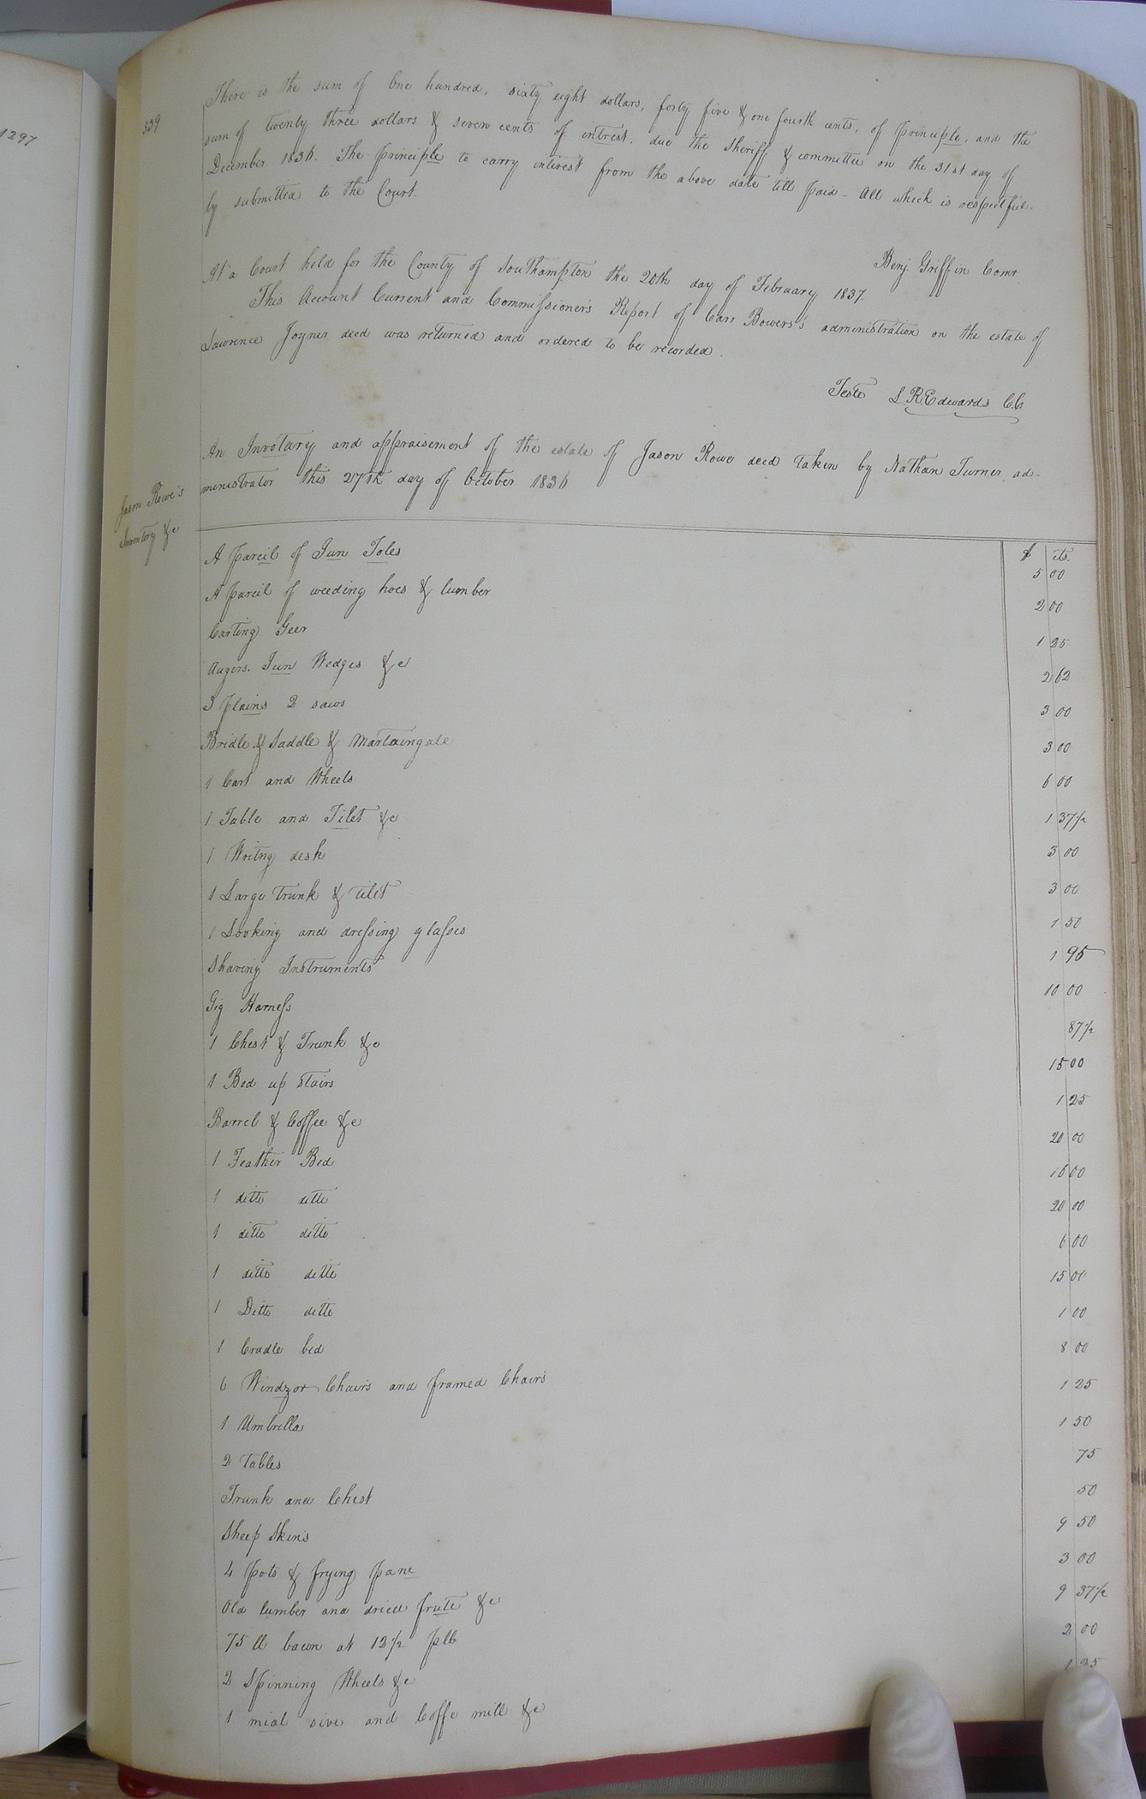 1297
339
There is the sum of One hundred, sixty eight dollars, forty five & one fourth cents, of principle, and the
sum of twenty three dollars & seven cents of intrest, due the Sheriff & committee on the 31st day of
December 1836. The principle to carry interest from the above date till paid - All which is respectful-
ly submitted to the Court.
Benj. Griffin Comr
At a Court held for the County of Southampton the 20th day of February 1837.
This Account Current and Commissioner's Report of Carr Bowers's administration on the estate of
Lawrence Joyner decd was returned and ordered to be recorded.
Teste L R Edwards CC
Jason Rowe's
Inventory &c
An Invotary and appraisement of the estate of Jason Rowe decd taken by Nathan Turner, ad-
ministrator this 27th day of October 1836
$ cts.
A Parcil of Iun Toles 5 00
A parcil of weeding hoes & lumber 2 00
Carting Geer 1 25
Augers. Iun Wedges &c 2 62
3 plains 2 saws 3 00
Bridle & Saddle & Martaingale 3 00
1 Cart and Wheels 6 00
1 Table and Tilet &c 1 37½
1 Writng desk 3 00
1 Large Trunk & tilet 3 00
1 Looking and dressing glasses 1 50
Shaving Instruments 1 95
Gig Harness 10 00
1 Chest & Trunk &c 87½
1 Bed up stairs 15 00
Barrel & Coffee &c 1 25
1 Feather Bed 20 00
1 ditto ditto 16 00
1 ditto ditto 20 00
1 ditto ditto 6 00
1 Ditto ditto 15 00
1 Cradle bed 1 00
6 Windzor Chairs and framed Chairs 8 00
1 Umbrella 1 25
2 tables 1 50
Trunk and Chest 75
Sheep Skins 50
4 pots & frying pane 9 50
Old lumber and dried frute &c 3 00
75 lb bacon at 12½ p lb 9 37½
2 Spinning Wheels &c 2 00
1 mial sive and Coffe mill &c 1 25